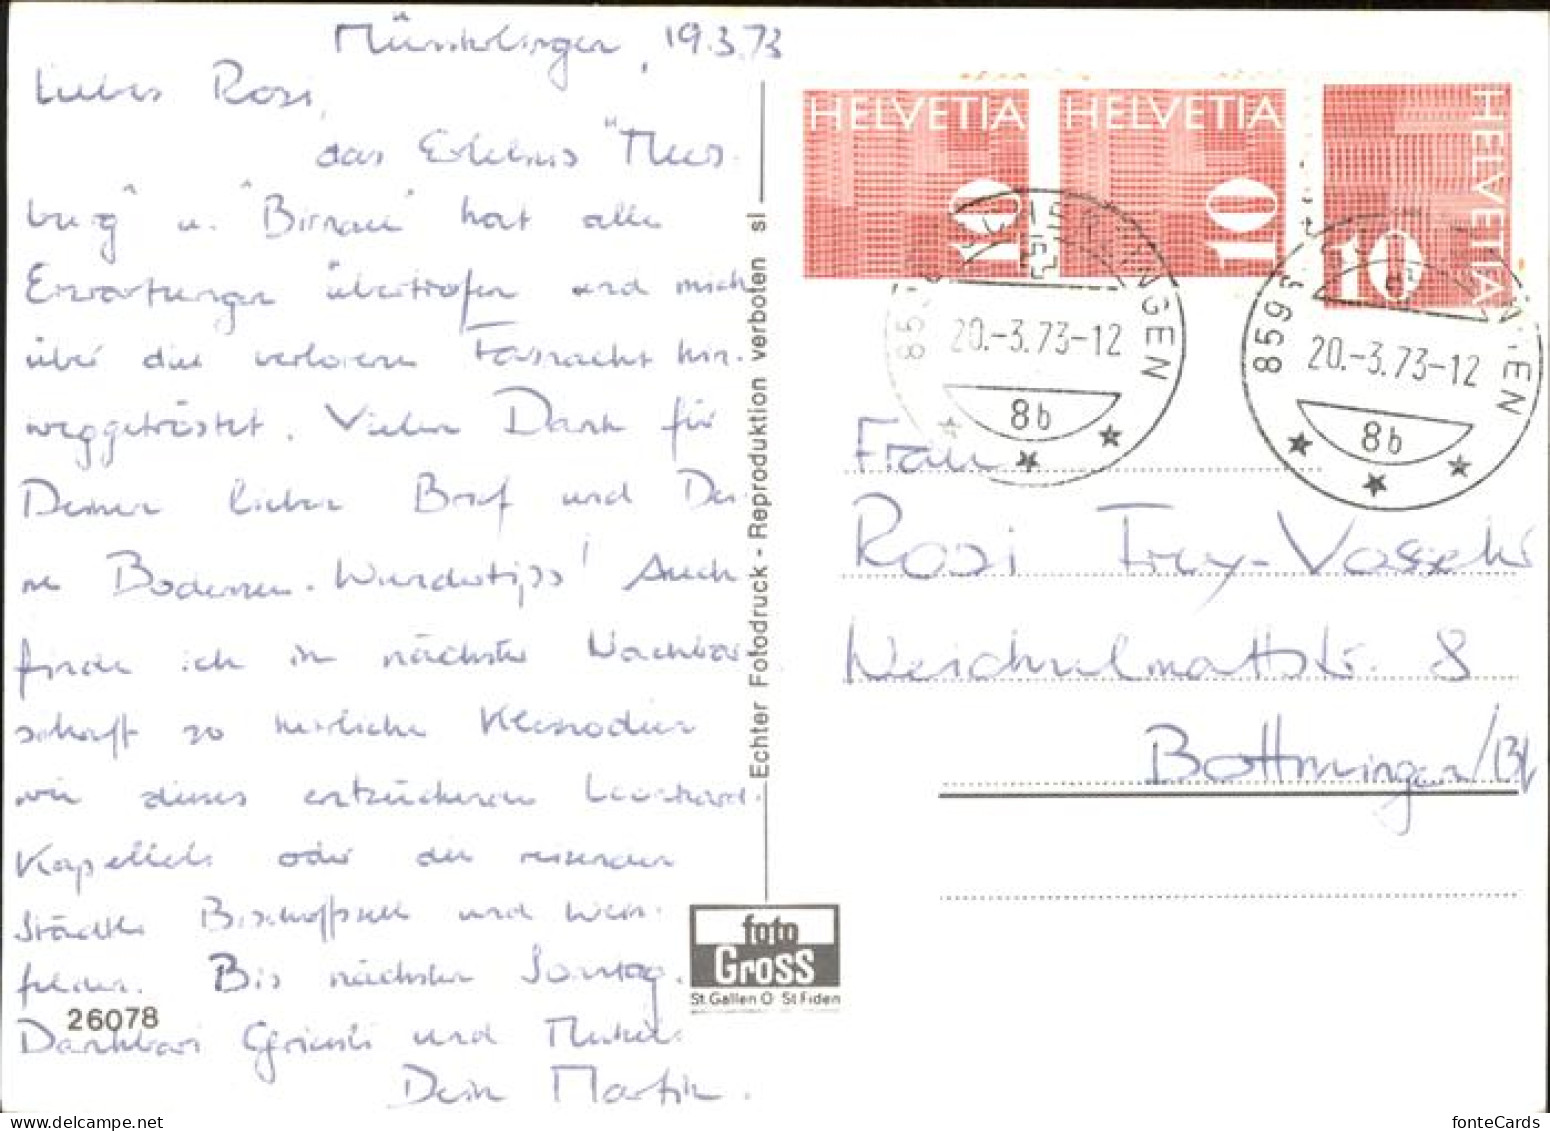 Münsterlingen, 19.3.73
Liebes Rosi,
das Erlebnis "Meers-
burg" u. "Birnau" hat alle
Erwartungen übertroffen und mich
über die verlorene Fasnacht hin-
weggetröstet. Vielen Dank für
Deinen lieben Brief und Dei-
ne Bodensee-Wundertips! Auch
finde ich in nächster Nachbar
schaft so herrliche Kleinodien
wie dieses entzückende Leonhard-
Kapelleli oder die reizenden
Städtli Bischoffszell und Wein-
felden. Bis nächsten Sonntag.
Dankbari Griessli und
Dein Martin.
26078
Echter Fotodruck - Reproduktion verboten sl
foto
Gross
St. Gallen O St Fiden
HELVETIA 10
HELVETIA 10
HELVETIA 10
20.-3.73-12
8b
859
20.-3.73-12
8b
Frau
Rosi Frey-
Weichselmattstr. 8
Bottmingen/BL
fonteCards